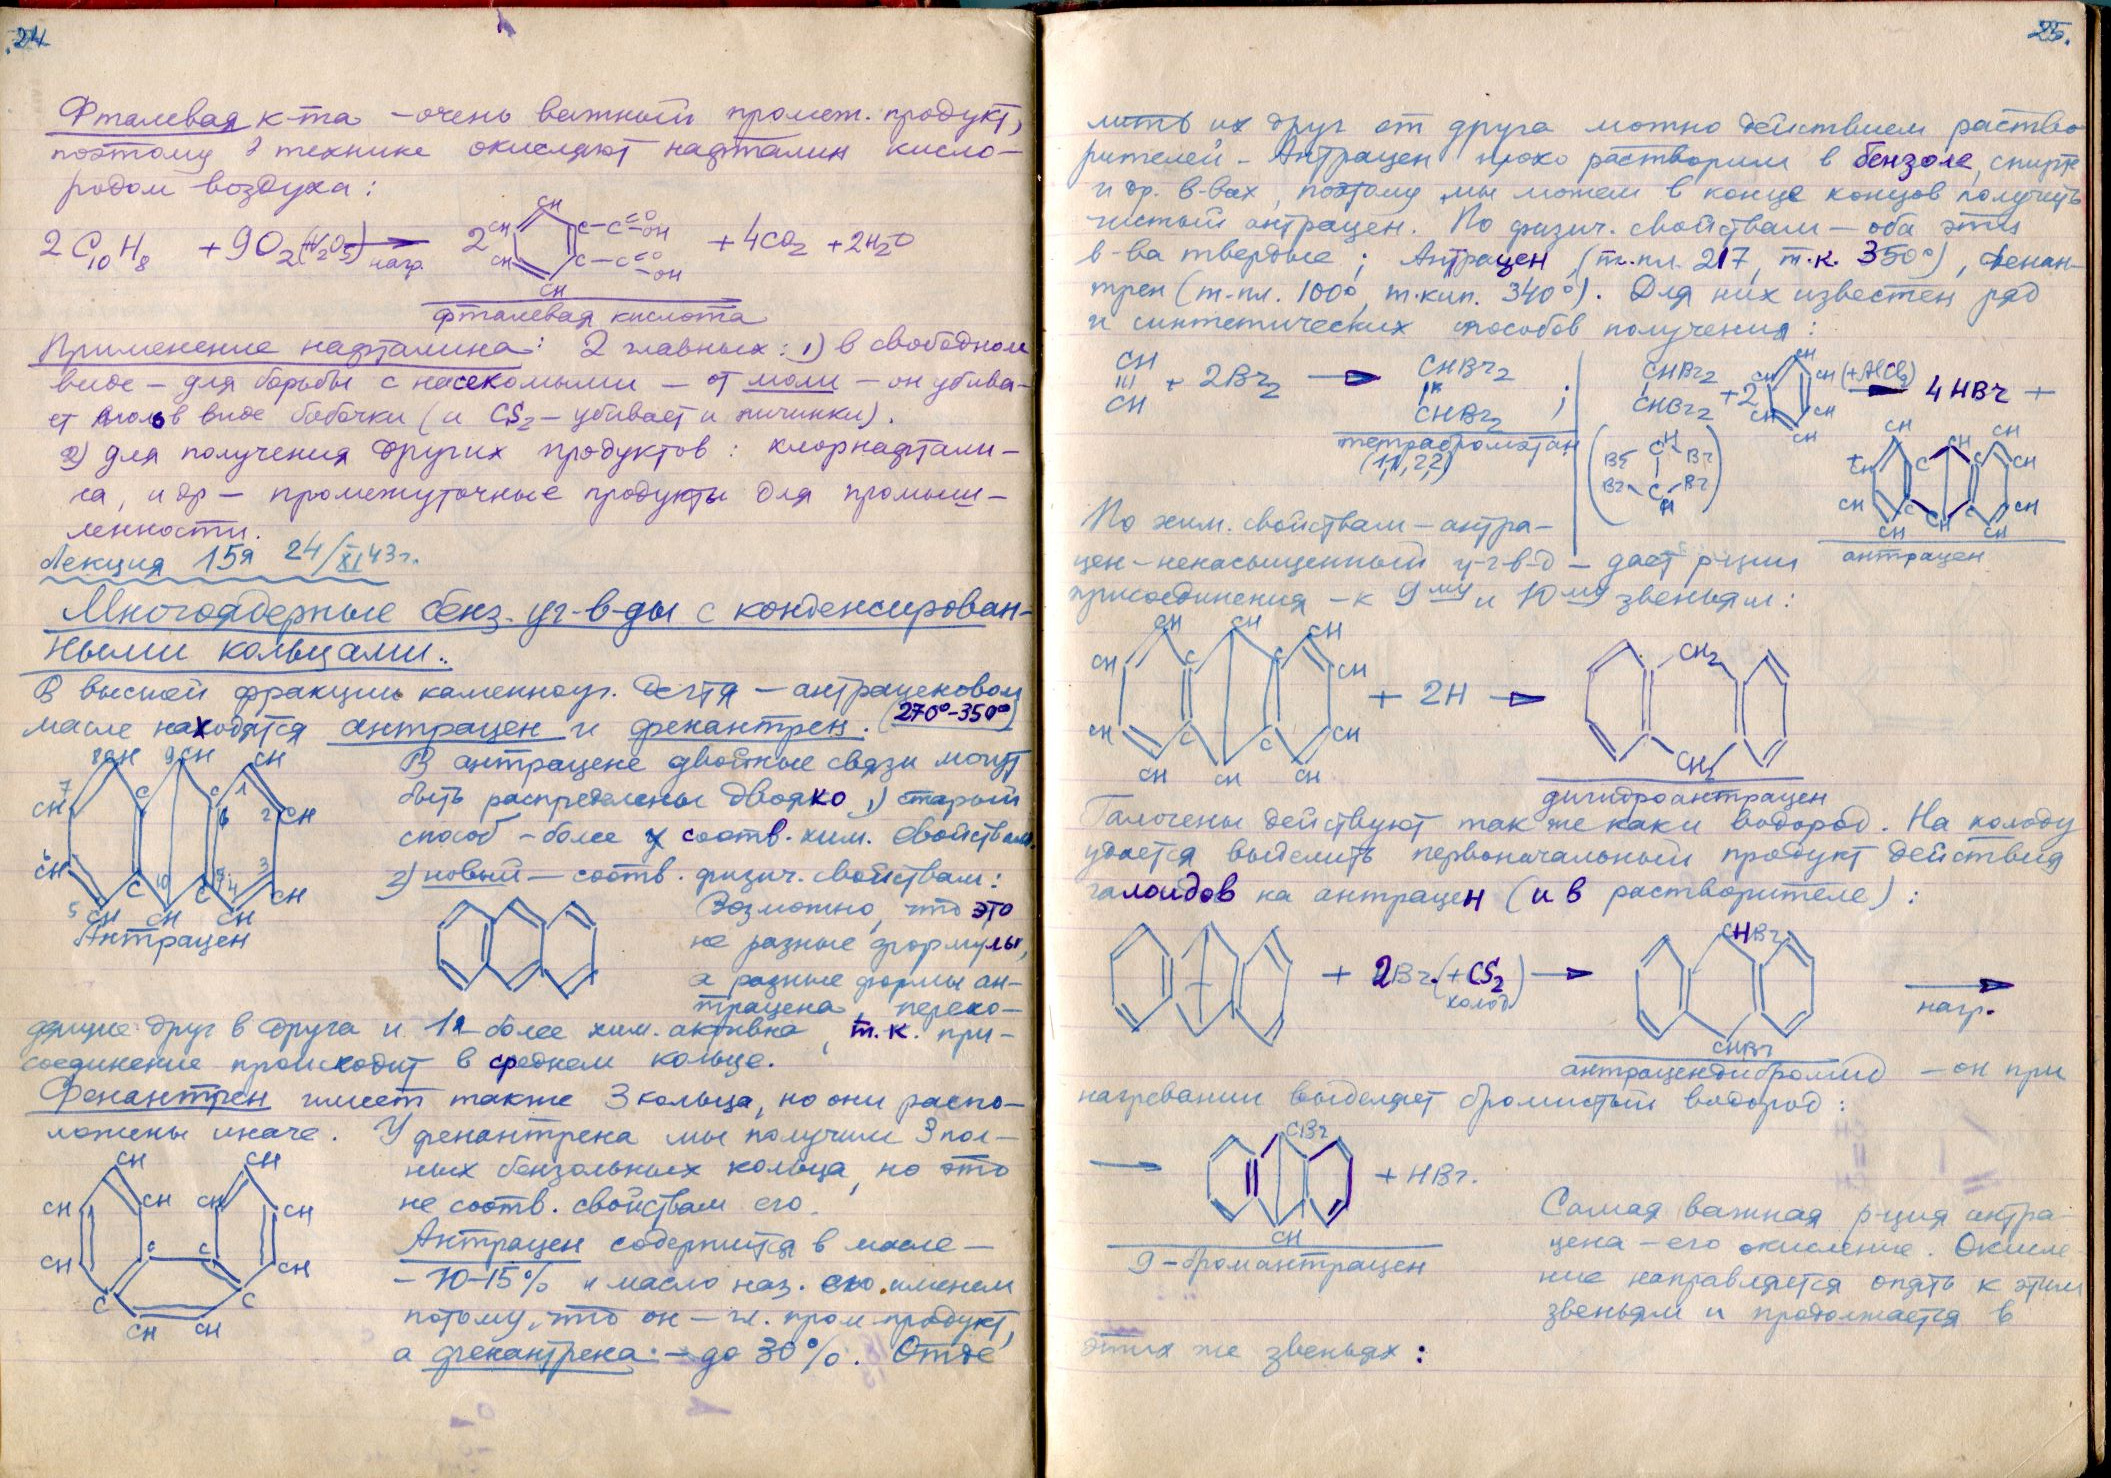 24.
Фталевая к-та – очень важный промеж. продукт,
поэтому в технике окисляют нафталин кисло-
родом воздуха:
2C10H8 + 9O2 (+V2O5) → нагр. 2 CH CH CH CH C–C=O–OH C–C=O–OH + 4CO2 + 2H2O
фталевая кислота
Применение нафталина: 2 главных: 1) в свободном
виде – для борьбы с насекомыми – от моли – он убива-
ет моль в виде бабочки (и CS2 – убивает и личинки).
2) для получения других продуктов: хлорнафтали-
на, и др – промежуточные продукты для промыш-
ленности.
Лекция 15я 24/XI 43г.
Многоядерные бенз. уг-в-ды с конденсирован-
ными кольцами.
В высшей фракции каменноуг. дегтя – антраценовом
масле находятся антрацен и фенантрен. (270°-350°)
8CH 9CH CH
7 CH C C 1 2 CH
6 CH C 10 C 4 3 CH
5 CH CH CH
Антрацен
В антрацене двойные связи могут
быть распределены двояко 1) старый
способ – более соотв. хим. свойствам.
2) новый – соотв. физич. свойствам:
Возможно, что это
не разные формулы,
а разные формы ан-
трацена, перехо-
дящие друг в друга и 1я более хим. активна, т.к. при-
соединение происходит в среднем кольце.
Фенантрен имеет также 3 кольца, но они распо-
ложены иначе. У фенантрена мы получим 3 пол-
ных бензольных кольца, но это
не соотв. свойствам его.
CH CH
CH CH CH CH
CH C C CH
C C
CH CH
Антрацен содержится в масле –
– 10-15% и масло наз. его именем
потому, что он – гл. пром. продукт,
а фенантрена – до 30%. Отде
25.
лить их друг от друга можно действием раство
рителей – Антрацен плохо растворим в бензоле, спирте
и др. в-вах, поэтому мы можем в конце концов получить
чистый антрацен. По физич. свойствам – оба эти
в-ва твердые; Антрацен (т.пл. 217, т.к. 350°), фенан-
трен (т-пл. 100°, т.кип. 340°). Для них известен ряд
и синтетических способов получения:
CH ≡ CH + 2Br2 → CHBr2 CHBr2 ;
тетраброметан
(1,1,2,2)
CHBr2 CHBr2 + 2 CH CH CH CH CH CH (+AlCl3) → 4HBr +
(H C Br Br Br Br C H)
CH CH CH
CH C C CH
CH C C CH
CH CH CH
антрацен
По хим. свойствам – антра-
цен – ненасыщенный у-г-в-д – дает р-ции
присоединения – к 9му и 10му звеньям:
CH CH CH
CH C C CH
+ 2H → CH2 CH2
CH C C CH
CH CH CH
дигидроантрацен
Галогены действуют так же как и водород. На холоду
удается выделить первоначальный продукт действия
галоидов на антрацен (и в растворителе):
+ 2Br (+CS2) холод → CHBr CHBr → нагр.
антрацендибромид – он при
нагревании выделяет бромистый водород:
→ CBr CH + HBr.
9-бромантрацен
Самая важная р-ция антра-
цена – его окисление. Окисле-
ние направляется опять к этим
звеньям и продолжается в
этих же звеньях: